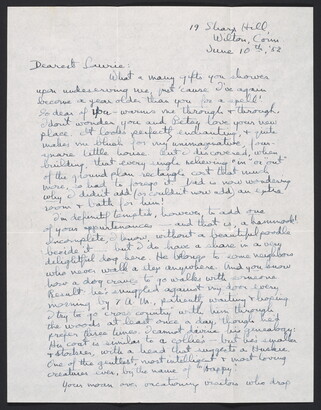 19 Sharp Hill,
Wilton, Conn
June 10th, '52
Dearest Laurie:
What a many gifts you shower
upon undeserving me, just 'cause I've again
become a year older than you for a spell!
So dear of you - warms me through & through.
I don't wonder you and Betsy love your new
place. It looks perfectly enchanting, & quite
makes me blush for my unimaginative,
square little house. But I discovered, when
building, that every single relieving "in" or "out"
of the ground plan rectangle cost that much
more, so had to forego it. Dad is now wondering
why I didn't add (or couldn't now add) an extra
room & bath for him!
I'm definitely tempted, however, to add one
of your appurtenances and that is, a hammock!
Incomplete, I know, without a beautiful poodle
beside it - but I do have a share in a very
delightful dog here. He belongs to some neighbors
who never walk a step anywhere. And you know
how a dog craves to go walks with someone.
Result: he's snuggled against my door every
morning by 7 A.M., patiently waiting & hoping.
I try to go cross country with him through
the woods at least once a day, though he'd
prefer three times. I cannot divine his genealogy:
His coat is similar to a collie's - but he's smaller
& stockier, with a head that suggests a Huskie.
One of the gentlest, most intelligent & most loving
creatures ever, by the name of "Happy."
Your moan over vacationing visitors who drop